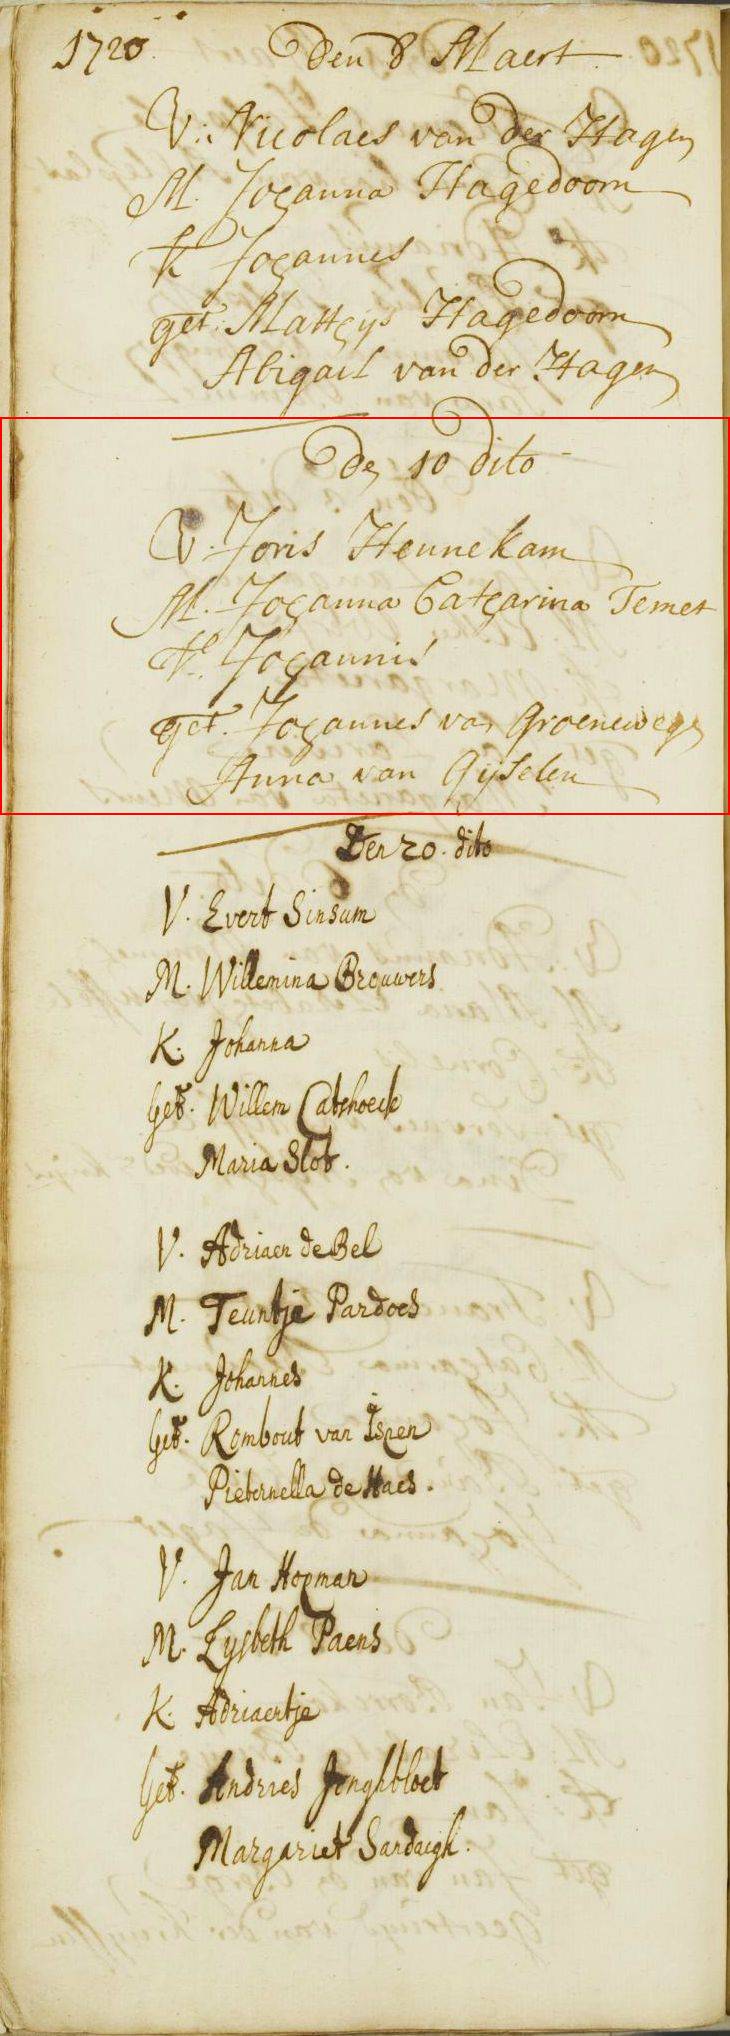 1720 Den 8 Maert
V: Nicolaes van der Hagen
M. Johanna Hagedoorn
K Johannes
get: Matthijs Hagedoorn
Abigael van der Hagen
Den 10 dito
V. Joris Hennekam
M. Johanna Catharina Temet
K. Johannis
get. Johannes van Groenewegen
Anna van Gijselen
Den 20. dito
V. Evert Sinsum
M. Willemina Brouwers
K. Johanna
Get. Willem Catshoeck
Maria Slot.
V. Adriaen de Bel
M. Teuntje Pardoes
K. Johannes
Get. Rombout van Ispen
Pieternella de Haes.
V. Jan Hopman
M. Lysbeth Paens
K. Adriaentje
Get. Andries Jonghbloet
Margariet Sardaigh.